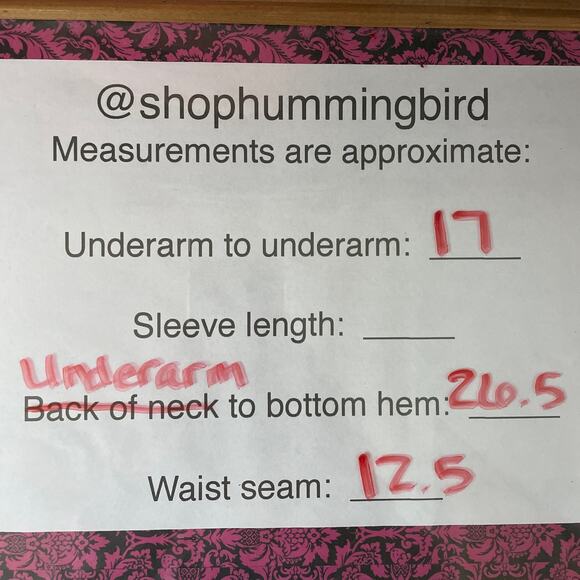 @shophummingbird
Measurements are approximate:
Underarm to underarm: 17
Sleeve length:
Underarm
Back of neck to bottom hem: 26.5
Waist seam: 12.5